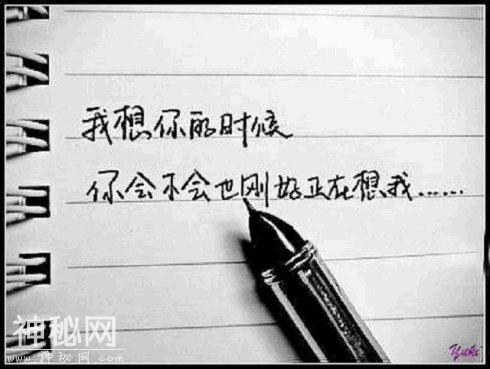 我想你的时候
你会不会也刚好正在想我……
神秘网
www.神秘网.com
Yuki